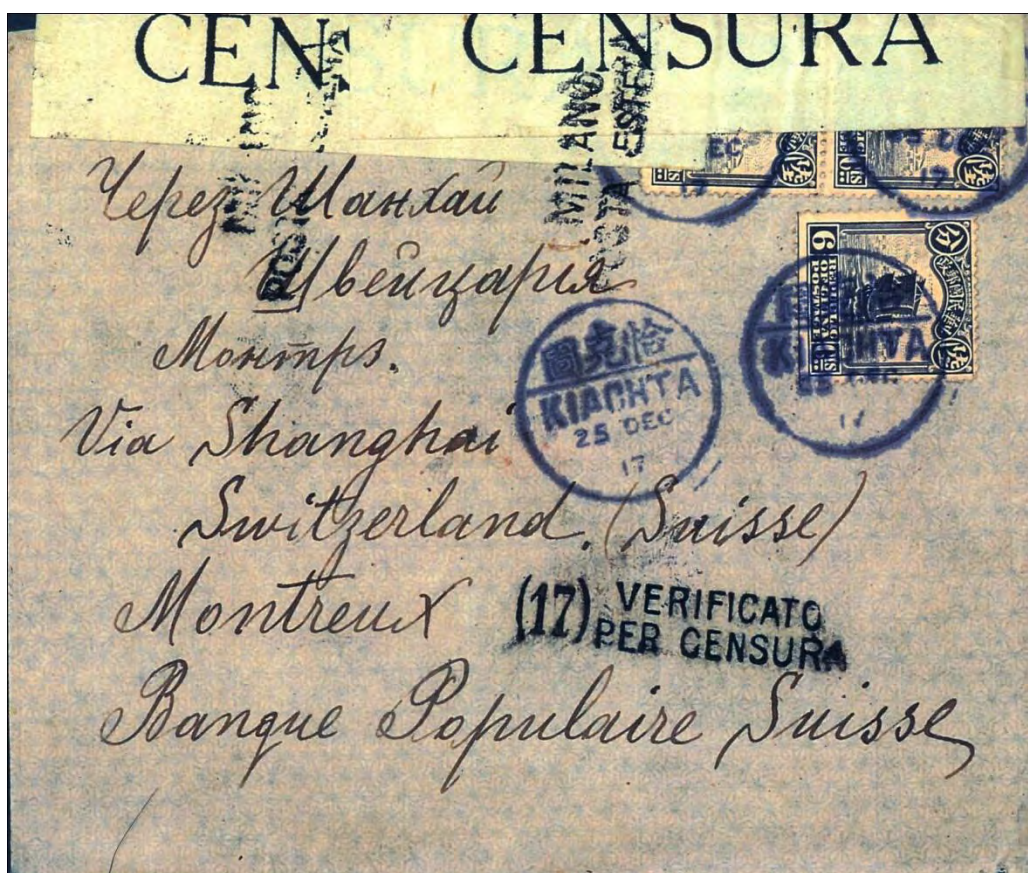 CEN CENSURA
MILANO
POSTA ESTERA
EC
17
DEC
17
Через Шанхай
Швейцарія
Монтрэ.
REPUBLIC
OF CHINA
6
恰克圖
KIACHTA
25 DEC
17
KIACHTA
25 DEC
17
Via Shanghai
Switzerland. (Suisse)
Montreux
(17) VERIFICATO
PER CENSURA
Banque Populaire Suisse